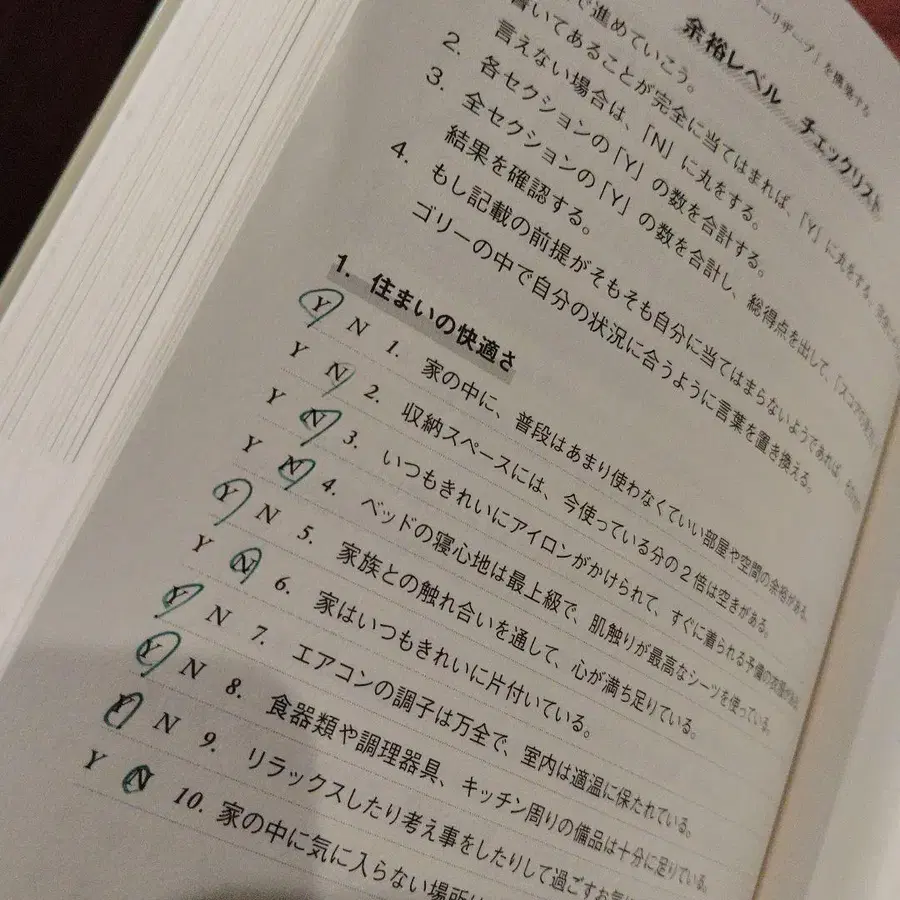 ーリザーブ」を構築する
余裕レベル チェックリスト
で進めていこう。
書いてあることが完全に当てはまれば、「Y」に丸をする。
言えない場合は、「N」に丸をする。
2. 各セクションの「Y」の数を合計する。
3. 全セクションの「Y」の数を合計し、総得点を出して、「スコア
結果を確認する。
4. もし記載の前提がそもそも自分に当てはまらないようであれば、
ゴリーの中で自分の状況に合うように言葉を置き換える。
1. 住まいの快適さ
Y N 1. 家の中に、普段はあまり使わなくていい部屋や空間の余裕がある。
Y N 2. 収納スペースには、今使っている分の2倍は空きがある。
Y N 3. いつもきれいにアイロンがかけられて、すぐに着られる予備の衣服が
Y N 4. ベッドの寝心地は最上級で、肌触りが最高なシーツを使っている。
Y N 5. 家族との触れ合いを通して、心が満ち足りている。
Y N 6. 家はいつもきれいに片付いている。
Y N 7. エアコンの調子は万全で、室内は適温に保たれている。
Y N 8. 食器類や調理器具、キッチン周りの備品は十分に足りている。
Y N 9. リラックスしたり考え事をしたりして過ごすお気
Y N 10. 家の中に気に入らない場所